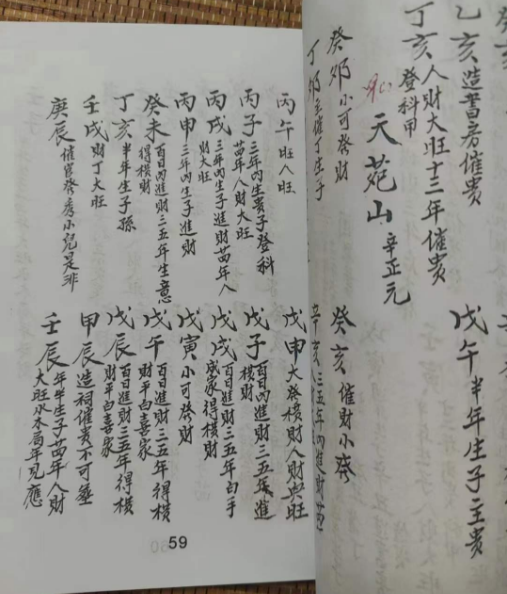 乙亥造書房催貴
丁亥人財大旺十三年催貴
登科甲
天苑山辛正元
戊午半年生子主貴
癸卯小可發財
丁卯主催丁生子
癸亥催財小發
丙午旺人旺
丙子三年內生貴子登科
廿年人財大旺
丙戌三年內生子進財廿年人
財大旺
丙申三年內生子進財
癸未百日內進財三五年生意
得橫財
丁亥半年生子孫
壬戌財丁大旺
庚辰催官發秀小兒是非
戊申大發橫財人財興旺
戊子百日內進財三五年進
橫財
戊戌百日進財三五年白手
成家得橫財
戊寅小可發財
戊午百日進財三五年得橫
財平白喜家
戊辰百日進財三五年得橫
財平白喜家
甲辰造祠催貴不可塟
壬辰年半生子廿四年人財
大旺水木局年見應
59